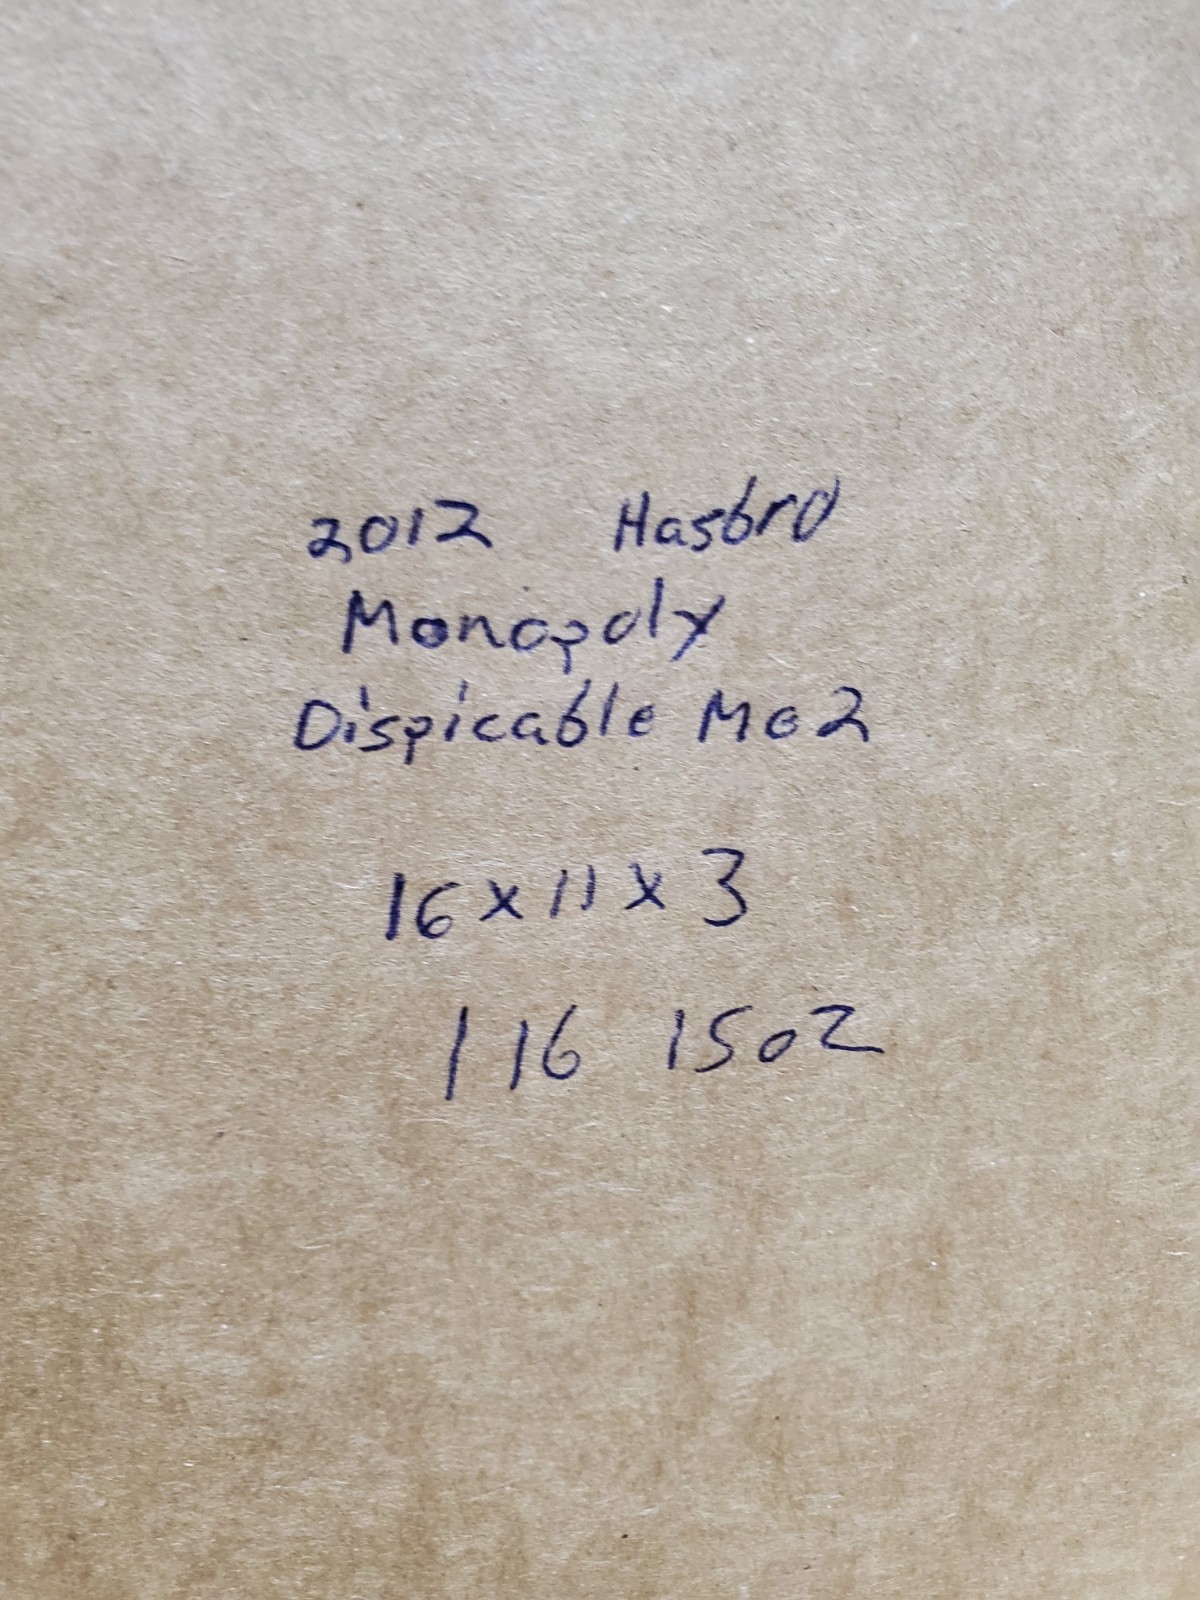 2012 Hasbro
Monopoly
Dispicable Me 2
16 x 11 x 3
1 lb 15oz